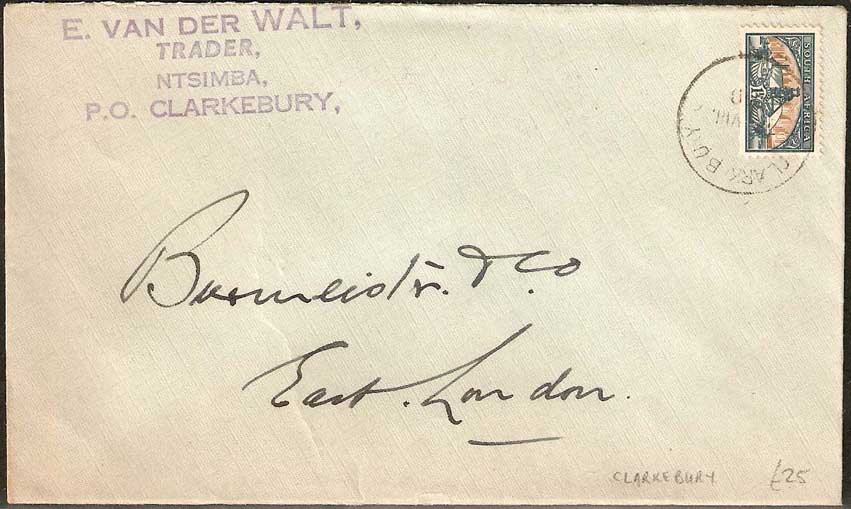 E. VAN DER WALT,
TRADER,
NTSIMBA,
P.O. CLARKEBURY,
SOUTH AFRICA
VIII
CLARKEBURY
Burmeister. & Co
East. London.
CLARKEBURY £25